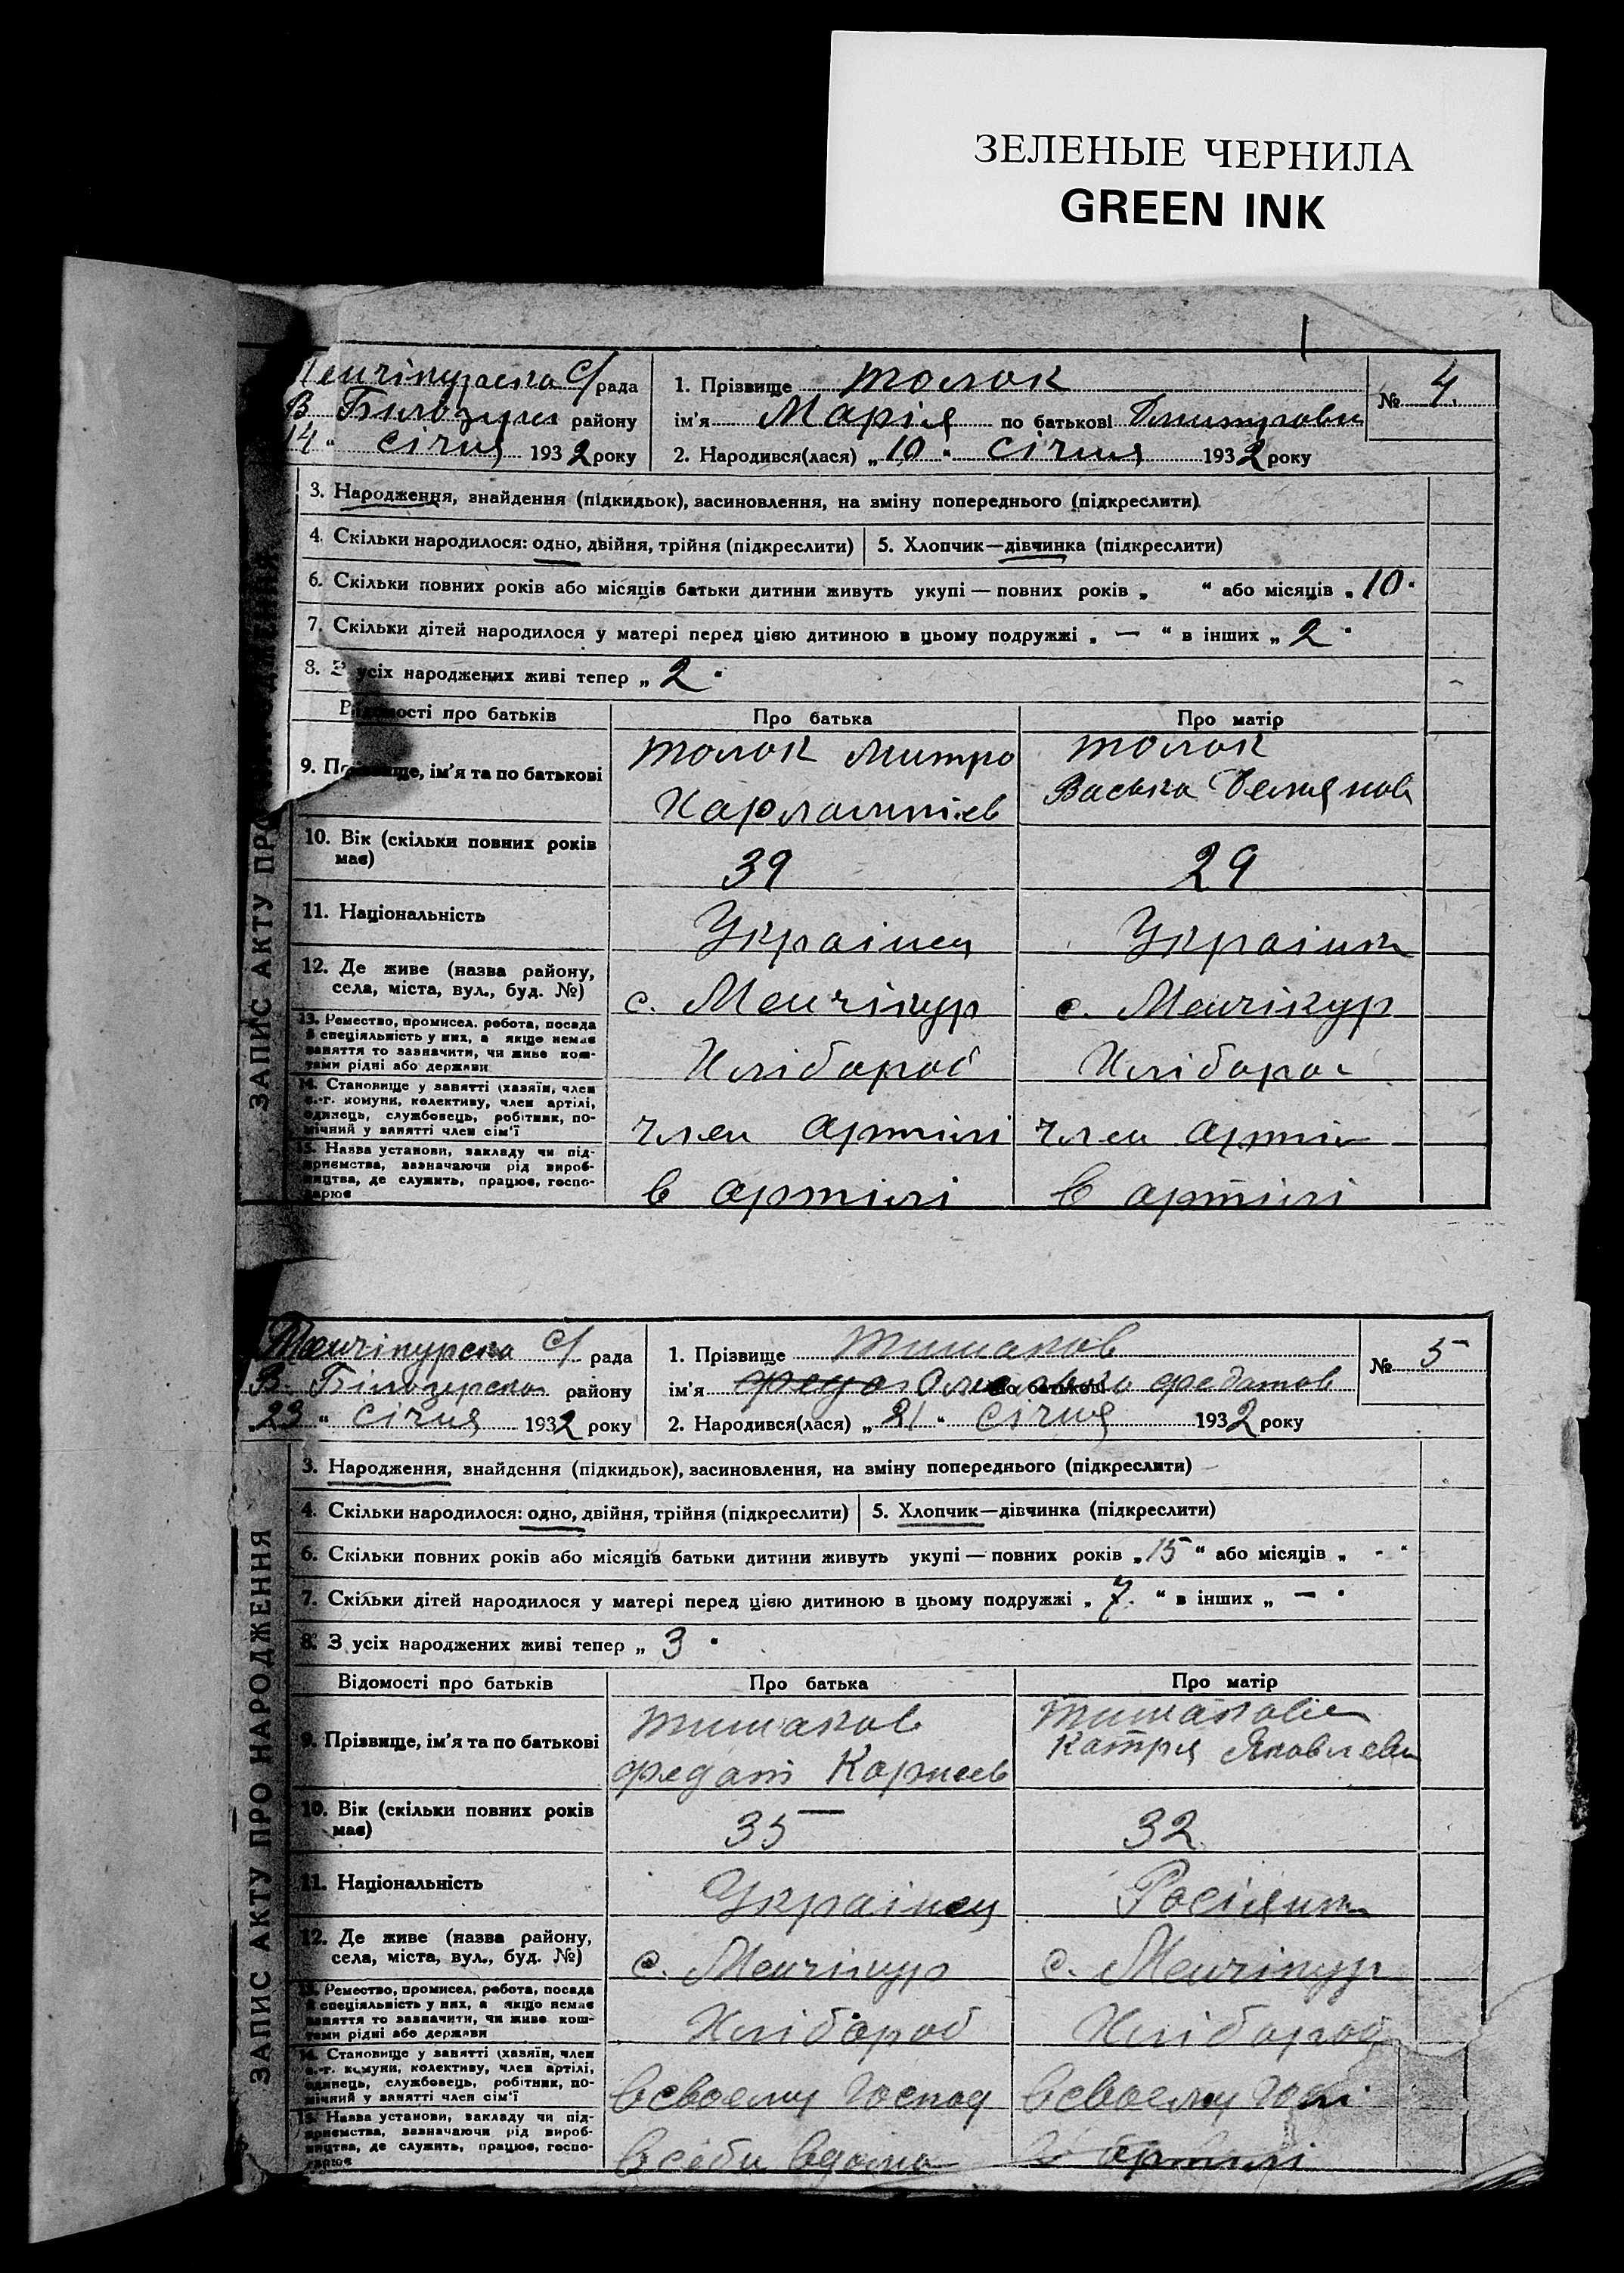 ЗЕЛЕНЫЕ ЧЕРНИЛА
GREEN INK
с/рада
В. району
14 " січня 1932 року
1. Прізвище Толок
ім'я Марія по батькові Дмитрови
2. Народився(лася) „ 10 " січня 1932 року
№ 4.
3. Народження, знайдення (підкидьок), засиновлення, на зміну попереднього (підкреслити)
4. Скільки народилося: одно, двійня, трійня (підкреслити)
5. Хлопчик—дівчинка (підкреслити)
6. Скільки повних років або місяців батьки дитини живуть укупі — повних років „ " або місяців „ 10 "
7. Скільки дітей народилося у матері перед цією дитиною в цьому подружжі „ — " в інших „ 2 "
8. З усіх народжених живі тепер „ 2 "
ості про батьків
Про батька
Про матір
9. ще, ім'я та по батькові
Толок Митро
Харлампіев
Толок
Васька Демянов
10. Вік (скільки повних років
має)
39
29
11. Національність
Украінец
Украінк
12. Де живе (назва району,
села, міста, вул., буд. №)
с. Менчікур
с. Менчікур
13. Ремество, промисел, робота, посада
й спеціяльність у них, а якщо немає
заняття то зазначити, чи живе кош-
тами рідні або держави
Хлібороб
Хлібороб
14. Становище у занятті (хазяїн, член
с.-г. комуни, колективу, член артілі,
одинець, службовець, робітник, по-
мічний у занятті член сім'ї
член артілі
член артіл
15. Назва установи, закладу чи під-
приємства, зазначаючи рід вироб-
ництва, де служить, працює, госпо-
дарює
в артілі
в артілі
ЗАПИС АКТУ ПРО
Менчікурска с/рада
В. Білозерском району
„23 " січня 1932 року
1. Прізвище Тишаков
ім'я по батькові Федотов
2. Народився(лася) „ 21 " січня 1932 року
№ 5
3. Народження, знайдення (підкидьок), засиновлення, на зміну попереднього (підкреслити)
4. Скільки народилося: одно, двійня, трійня (підкреслити)
5. Хлопчик—дівчинка (підкреслити)
6. Скільки повних років або місяців батьки дитини живуть укупі — повних років „ 15 " або місяців „ - "
7. Скільки дітей народилося у матері перед цією дитиною в цьому подружжі „ 7. " в інших „ — "
8. З усіх народжених живі тепер „ 3 "
Відомості про батьків
Про батька
Про матір
9. Прізвище, ім'я та по батькові
Тишаков
Федот Корнеев
Тишакова
Катря Яковлевн
10. Вік (скільки повних років
має)
35
32
11. Національність
Украінец
Росіянк
12. Де живе (назва району,
села, міста, вул., буд. №)
с. Менчікур
с. Менчікур
13. Ремество, промисел, робота, посада
й спеціяльність у них, а якщо немає
заняття то зазначити, чи живе кош-
тами рідні або держави
Хлібороб
Хлібороб
14. Становище у занятті (хазяїн, член
с.-г. комуни, колективу, член артілі,
одинець, службовець, робітник, по-
мічний у занятті член сім'ї
в своему господ
в своему
15. Назва установи, закладу чи під-
приємства, зазначаючи рід вироб-
ництва, де служить, працює, госпо-
дарює
в себи вдома
в артілі
ЗАПИС АКТУ ПРО НАРОДЖЕННЯ